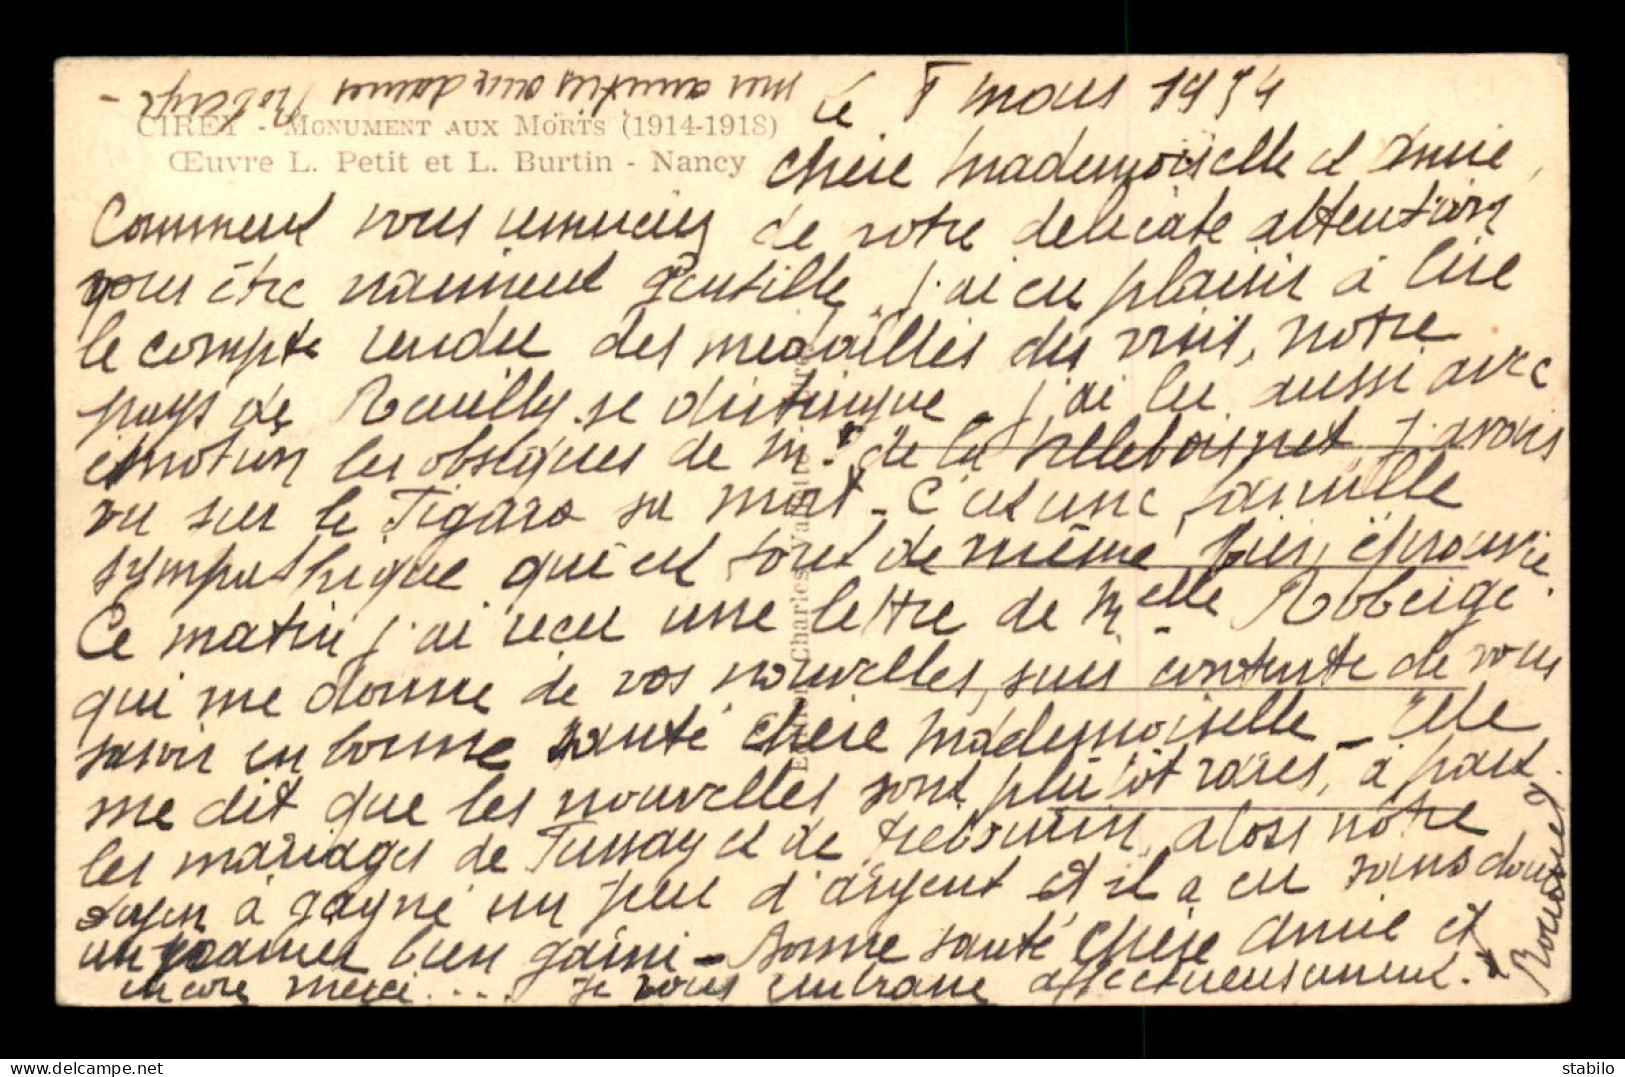 mes amitiés aux dames Roberge -
CIREY - MONUMENT AUX MORTS (1914-1918)
Œuvre L. Petit et L. Burtin - Nancy
Le 8 mars 1954
Chère Mademoiselle et Amie,
Comment vous remercier de votre délicate attention
vous être vraiment gentille, j'ai eu plaisir à lire
le compte rendu des médailles des vins, notre
pays de Reuilly se distingue - j'ai lu aussi avec
émotion les obsèques de Mr de la Villeboisnet j'avais
vu sur le Figaro sa mort - C'est une famille
sympathique qui est tout de même bien éprouvée.
Ce matin j'ai reçu une lettre de Melle Roberge
qui me donne de vos nouvelles, suis contente de vous
savoir en bonne santé chère Mademoiselle - Elle
me dit que les nouvelles sont plutôt rares, à part
les mariages de et de alors notre
doyen à gagné un peu d'argent et il a eu sans doute
un panier bien garni - Bonne santé chère Amie et
encore merci.... Je vous embrasse affectueusement.
Charles
stabilo